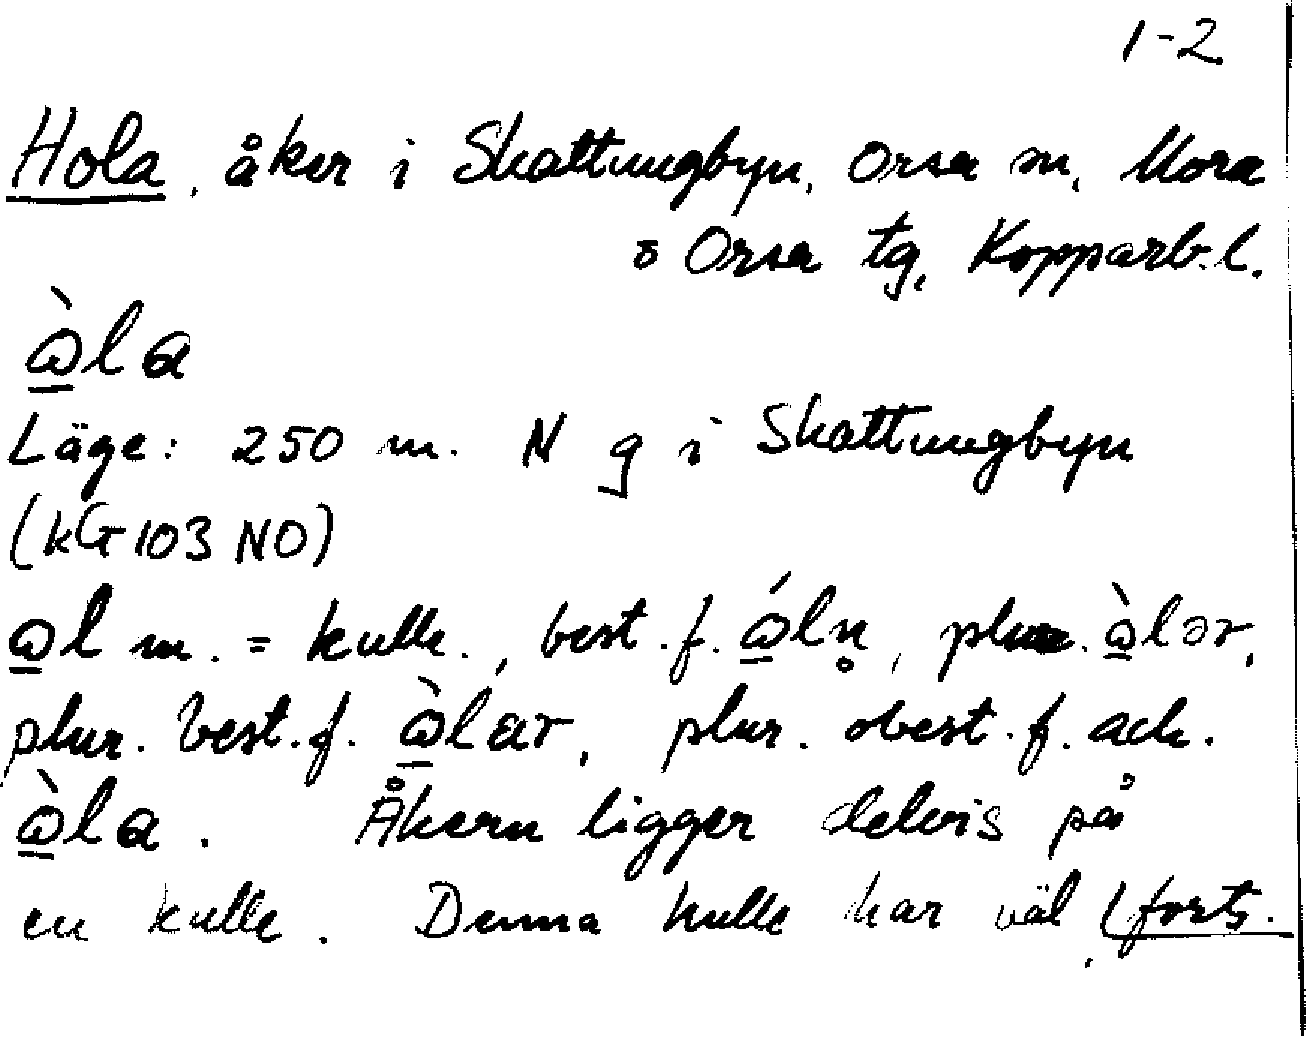 1-2
Hola, åker i Skattungbyn, Orsa sn, Mora
o Orsa tg, Kopparb.l.
ὰla
Läge: 250 m. N g i Skattungbyn
(kG 103 NO)
m. = kulle., best.f. plur.
plur. best.f. plur. obest.f. ack.
Åkern ligger delvis på
en kulle. Denna kulle har väl (forts.